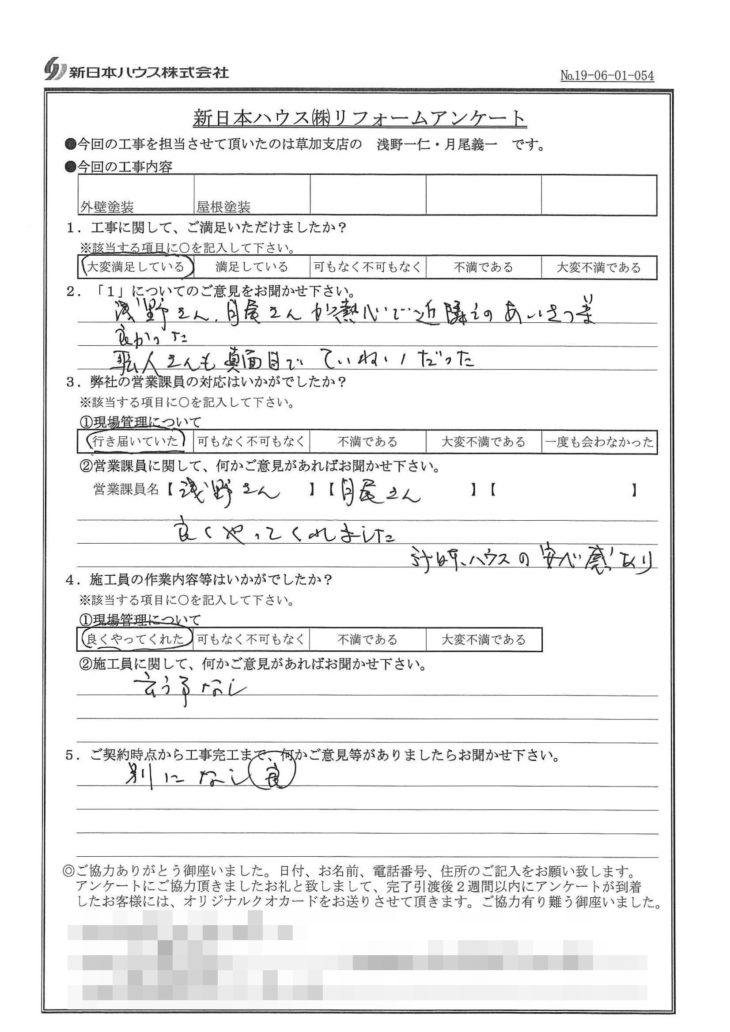 新日本ハウス株式会社
№19-06-01-054
新日本ハウス㈱リフォームアンケート
●今回の工事を担当させて頂いたのは草加支店の 浅野一仁・月尾義一 です。
●今回の工事内容
外壁塗装 屋根塗装
1．工事に関して、ご満足いただけましたか？
※該当する項目に○を記入して下さい。
大変満足している 満足している 可もなく不可もなく 不満である 大変不満である
2．「1」についてのご意見をお聞かせ下さい。
浅野さん、月尾さんが熱心で近隣へのあいさつま
良かった
さんも真面目でていねいだった
3．弊社の営業課員の対応はいかがでしたか？
※該当する項目に○を記入して下さい。
①現場管理について
行き届いていた 可もなく不可もなく 不満である 大変不満である 一度も会わなかった
②営業課員に関して、何かご意見があればお聞かせ下さい。
営業課員名【浅野さん 】【月尾さん 】【 】
良くやってくれました
ハウスの安心感あり
4．施工員の作業内容等はいかがでしたか？
※該当する項目に○を記入して下さい。
①現場管理について
良くやってくれた 可もなく不可もなく 不満である 大変不満である
②施工員に関して、何かご意見があればお聞かせ下さい。
云う事なし
5．ご契約時点から工事完工まで、何かご意見等がありましたらお聞かせ下さい。
別になし 良
◎ご協力ありがとう御座いました。日付、お名前、電話番号、住所のご記入をお願い致します。
アンケートにご協力頂きましたお礼と致しまして、完了引渡後２週間以内にアンケートが到着
したお客様には、オリジナルクオカードをお送りさせて頂きます。ご協力有り難う御座いました。